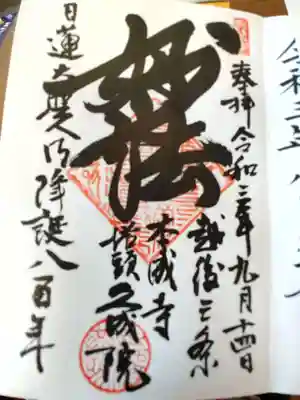 令和三年八
奉拝 令和三年九月十四日
越後三条
本成寺
塔頭 久成院
妙法
日蓮大聖人御降誕八百年